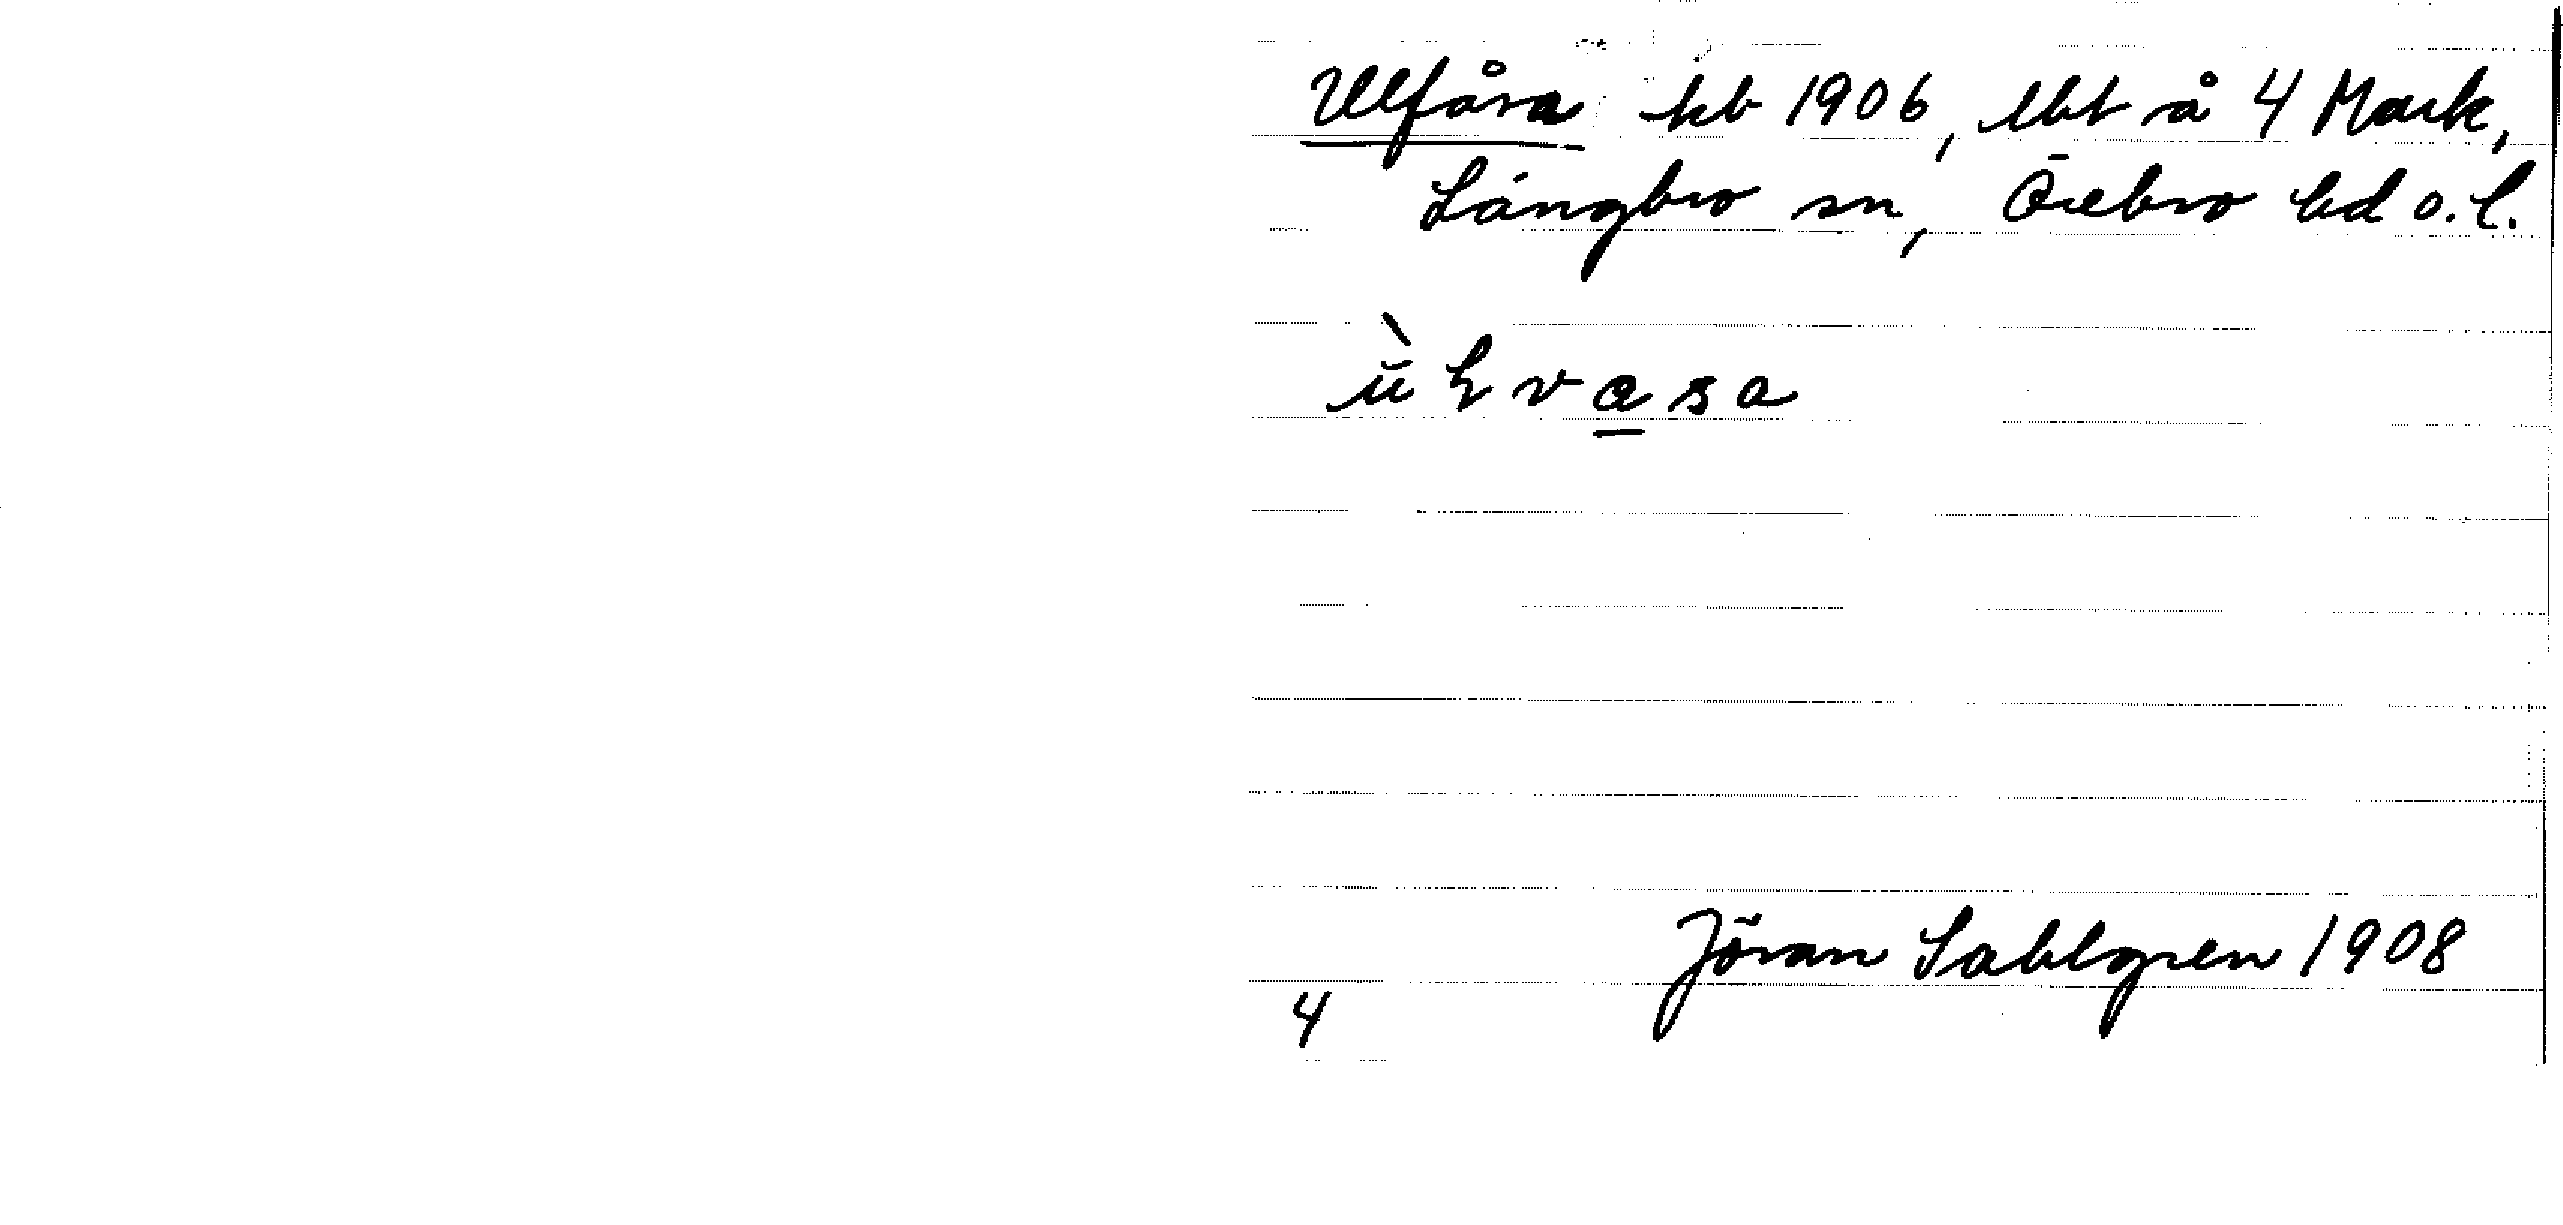 Ulfåsa kb 1906, lht å 4 Mark,
Långbro sn, Örebro hd o. l.
Jöran Sahlgren 1908
4